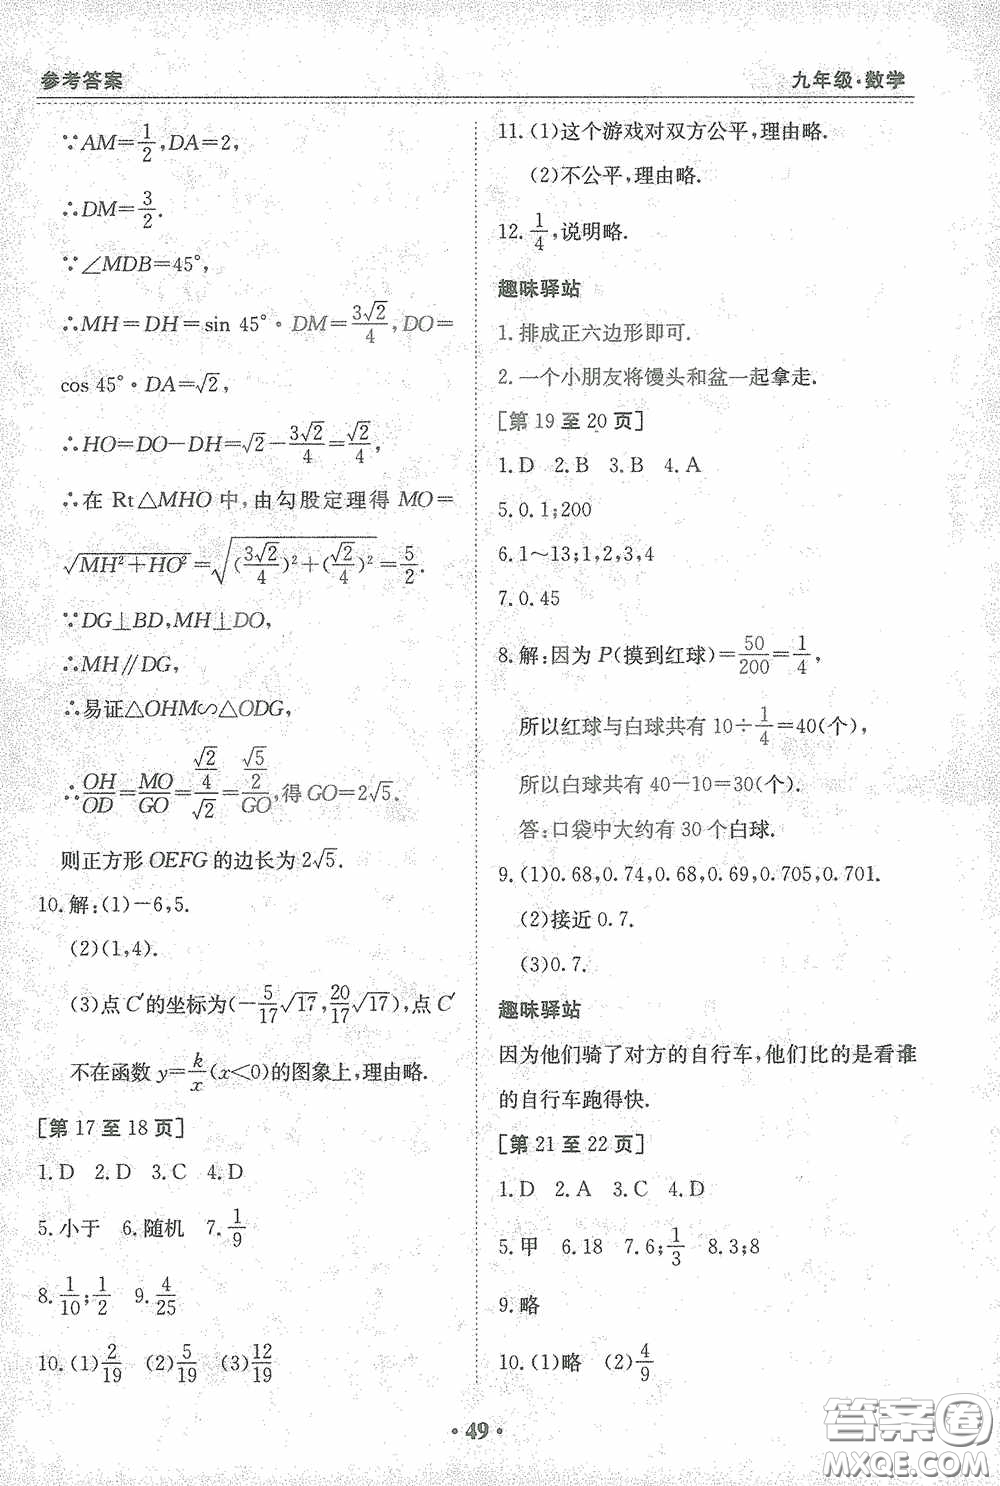 参考答案
九年级·数学
∵AM=1/2,DA=2,
∴DM=3/2.
∵∠MDB=45°,
∴MH=DH=sin 45°·DM=3√2/4,DO=
cos 45°·DA=√2,
∴HO=DO-DH=√2-3√2/4=√2/4,
∴在 Rt△MHO 中,由勾股定理得 MO=
√(MH²+HO²)=√((3√2/4)²+(√2/4)²)=5/2.
∵DG⊥BD,MH⊥DO,
∴MH∥DG,
∴易证△OHM∽△ODG,
∴OH/OD=MO/GO=(√2/4)/√2=(√5/2)/GO,得 GO=2√5.
则正方形 OEFG 的边长为 2√5.
10.解:(1)-6,5.
(2)(1,4).
(3)点 C′的坐标为(-5/17√17,20/17√17),点 C′
不在函数 y=k/x(x<0)的图象上,理由略.
[第 17 至 18 页]
1.D 2.D 3.C 4.D
5.小于 6.随机 7.1/9
8.1/10;1/2 9.4/25
10.(1)2/19 (2)5/19 (3)12/19
11.(1)这个游戏对双方公平,理由略.
(2)不公平,理由略.
12.1/4,说明略.
趣味驿站
1.排成正六边形即可.
2.一个小朋友将馒头和盆一起拿走.
[第 19 至 20 页]
1.D 2.B 3.B 4.A
5.0.1;200
6.1~13;1,2,3,4
7.0.45
8.解:因为 P(摸到红球)=50/200=1/4,
所以红球与白球共有 10÷1/4=40(个),
所以白球共有 40-10=30(个).
答:口袋中大约有 30 个白球.
9.(1)0.68,0.74,0.68,0.69,0.705,0.701.
(2)接近 0.7.
(3)0.7.
趣味驿站
因为他们骑了对方的自行车,他们比的是看谁
的自行车跑得快.
[第 21 至 22 页]
1.D 2.A 3.C 4.D
5.甲 6.18 7.6;1/3 8.3;8
9.略
10.(1)略 (2)4/9
·49·
答案卷
MXQE.COM